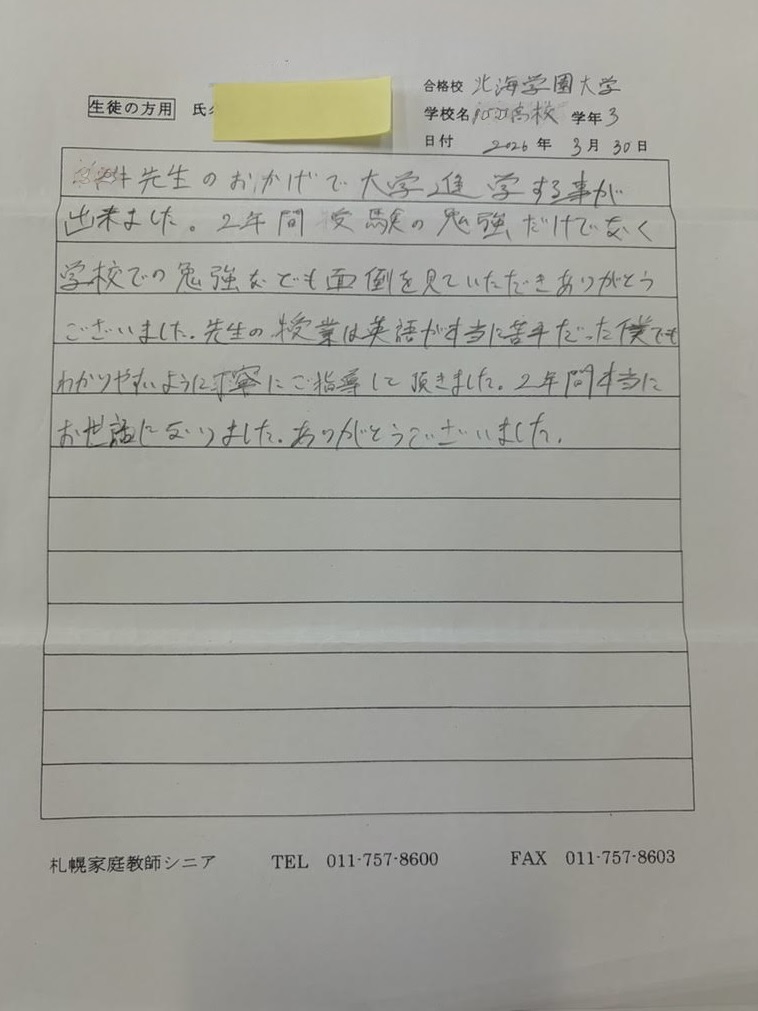 合格校 北海学園大学
生徒の方用 氏
学校名 高校 学年 3
日付 2026年 3月 30日
先生のおかげで大学進学する事が
出来ました。2年間受験の勉強だけでなく
学校での勉強なども面倒を見ていただきありがとう
ございました。先生の授業は英語が本当に苦手だった僕でも
わかりやすいように丁寧にご指導して頂きました。2年間本当に
お世話になりました。ありがとうございました。
札幌家庭教師シニア TEL 011-757-8600 FAX 011-757-8603